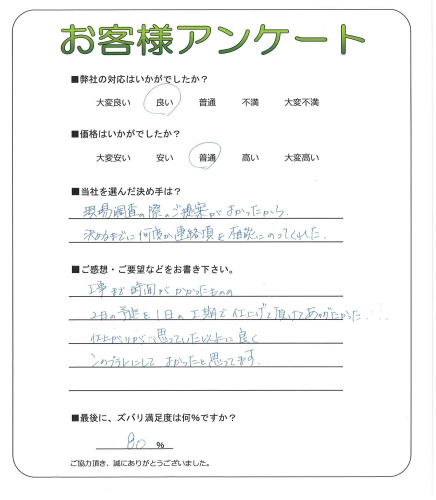 お客様アンケート
■弊社の対応はいかがでしたか？
大変良い 良い 普通 不満 大変不満
■価格はいかがでしたか？
大変安い 安い 普通 高い 大変高い
■当社を選んだ決め手は？
現場調査の際のご提案がよかったから.
決めるまでに何度か連絡頂き相談にのってくれた.
■ご感想・ご要望などをお書き下さい。
工事まで時間がかかったものの
2日の予定を1日の工期で仕上げて頂けてありがたかった
仕上がりが思っていた以上に良く
にして よかったと思ってます.
■最後に、ズバリ満足度は何％ですか？
80 ％
ご協力頂き、誠にありがとうございました。